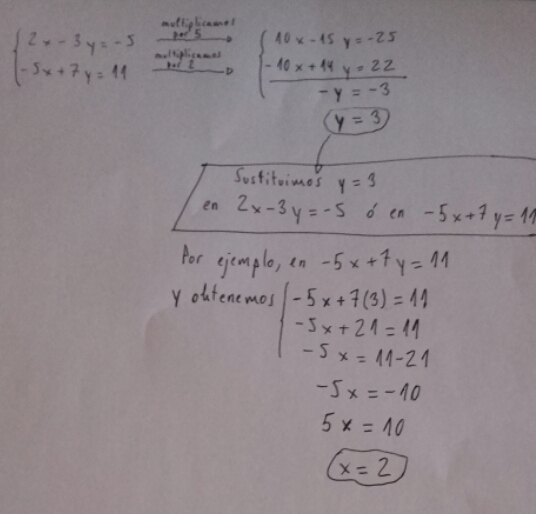 2x - 3y = -5 multiplicamos por 5 10x - 15y = -25
-5x + 7y = 11 multiplicamos por 2 -10x + 14y = 22
-y = -3
y = 3
Sustituimos y = 3
en 2x - 3y = -5 ó en -5x + 7y = 11
Por ejemplo, en -5x + 7y = 11
y obtenemos -5x + 7(3) = 11
-5x + 21 = 11
-5x = 11 - 21
-5x = -10
5x = 10
x = 2